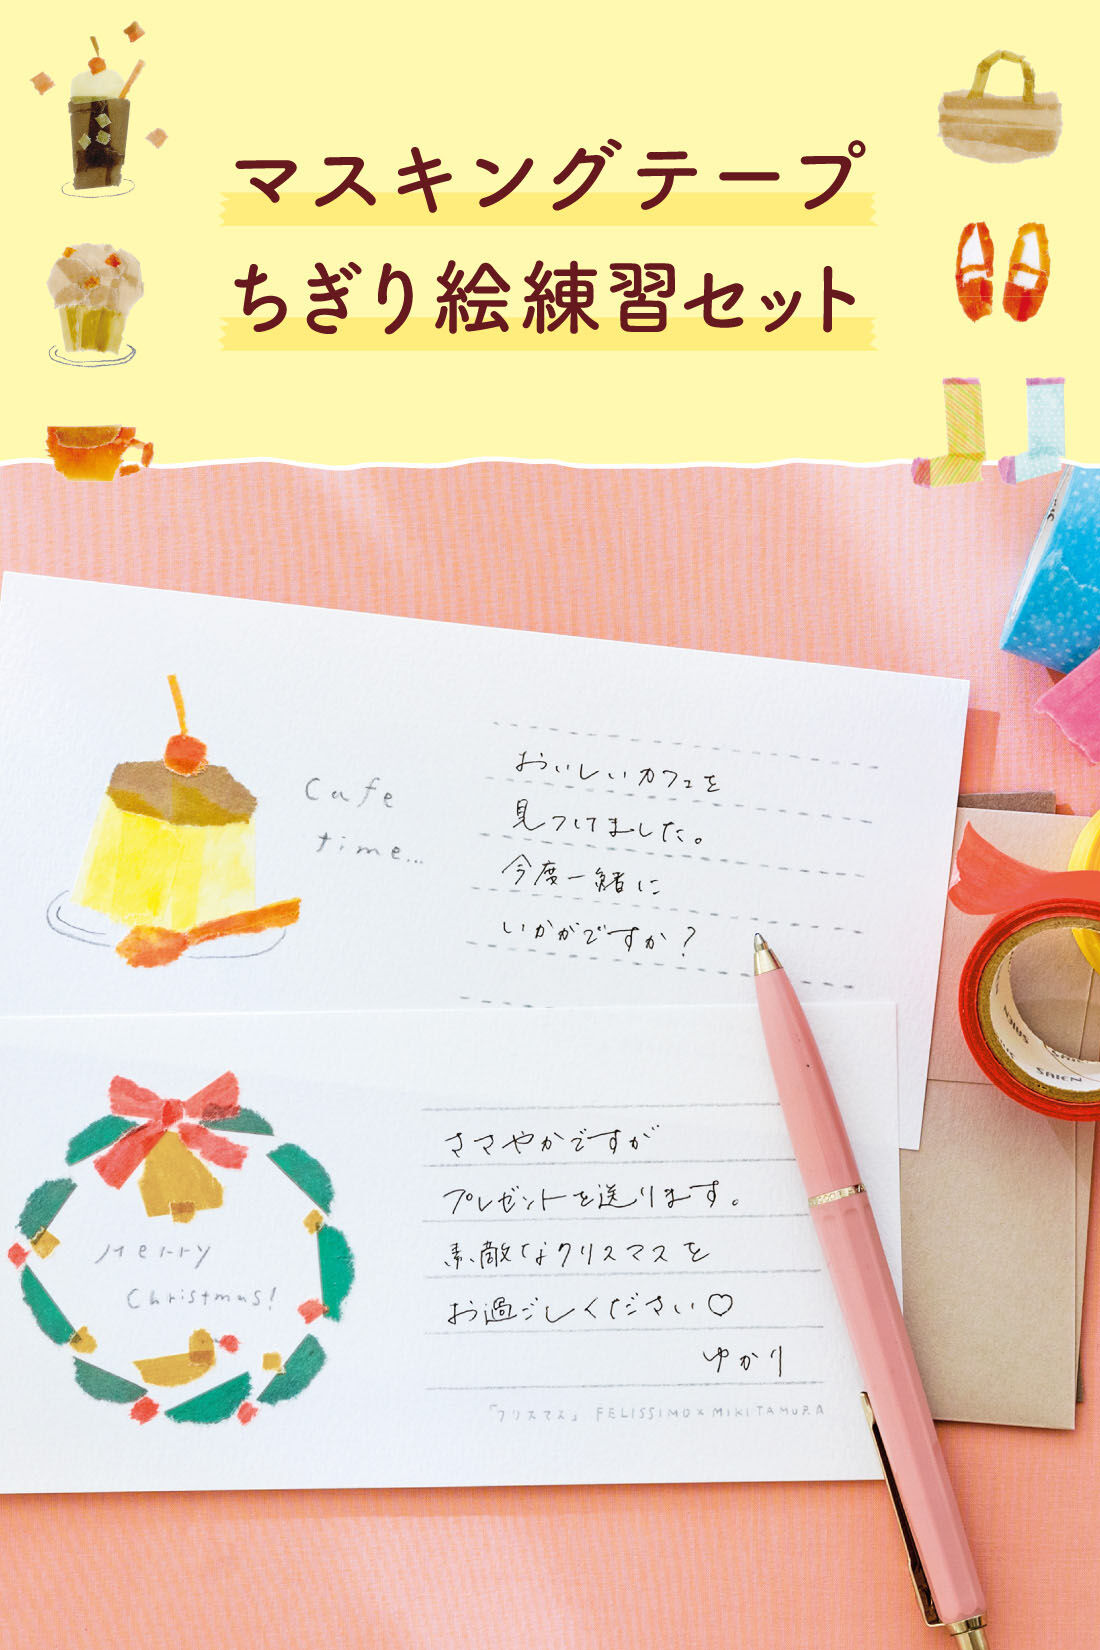 マスキングテープ
ちぎり絵練習セット
Cafe
time...
おいしいカフェを
見つけました。
今度一緒に
いかがですか?
Merry
Christmas!
ささやかですが
プレゼントを送ります。
素敵なクリスマスを
お過ごしください♡
ゆかり
「クリスマス」 FELISSIMO×MIKITAMURA
SAIEN